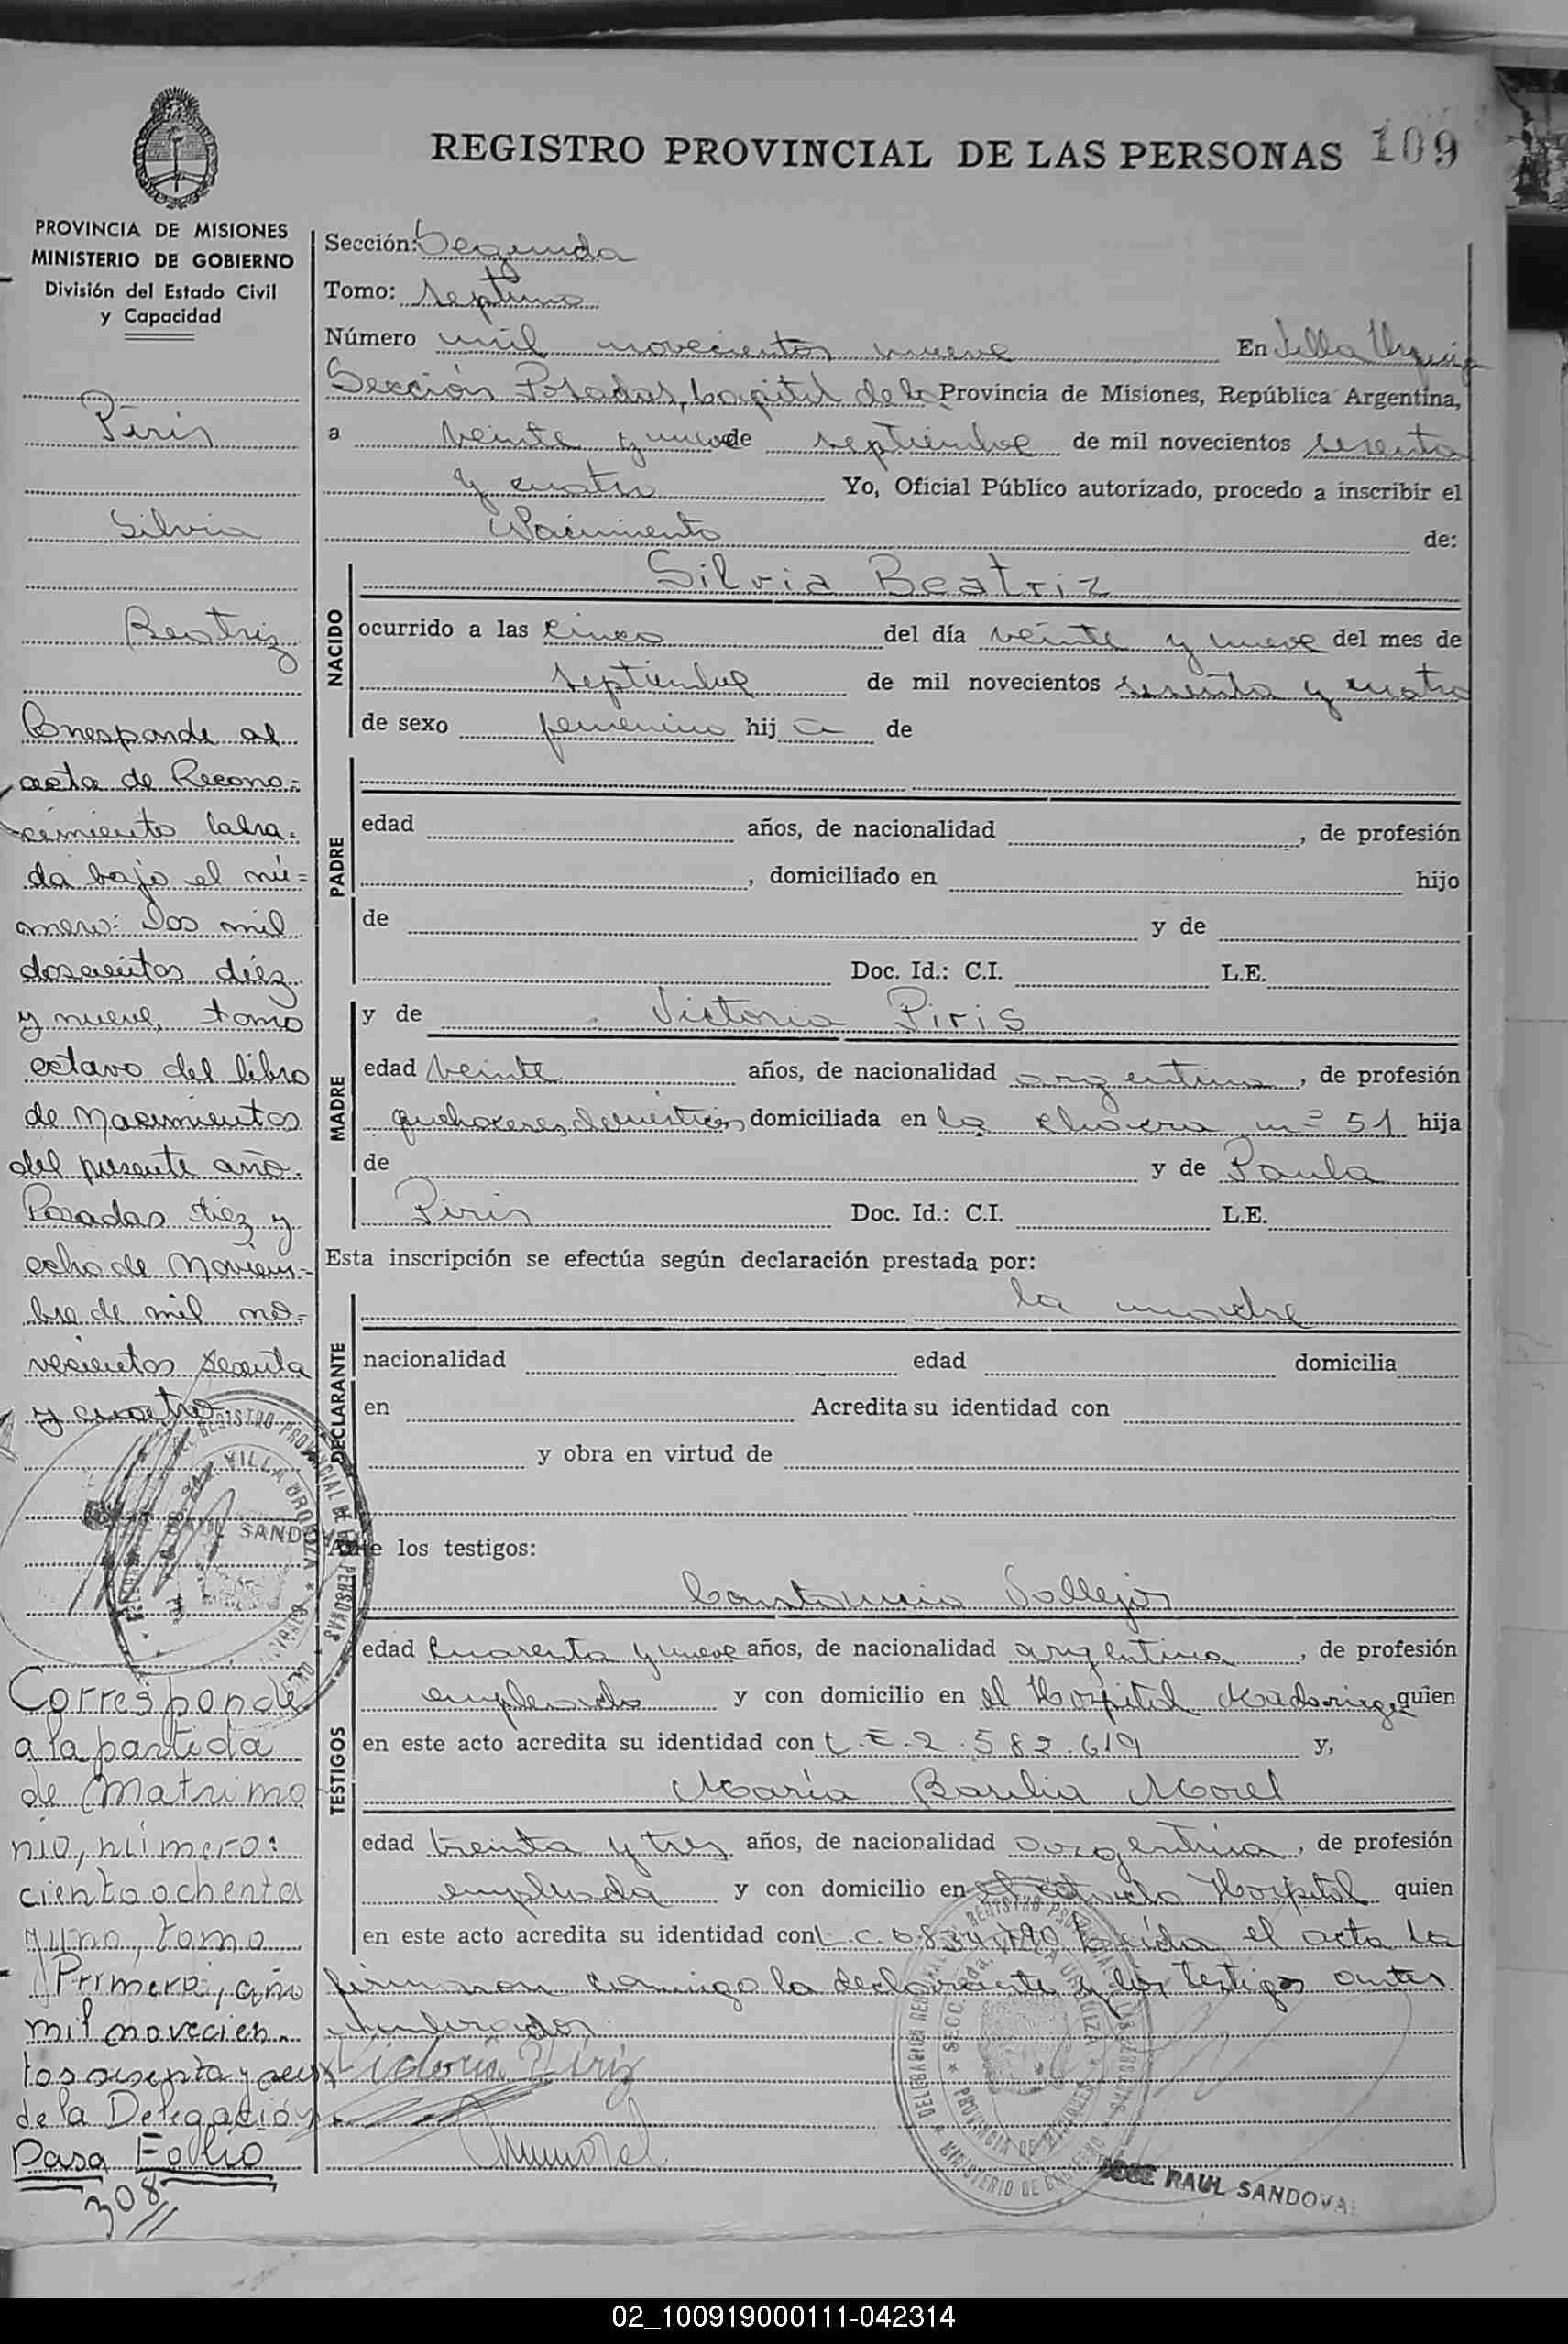 REGISTRO PROVINCIAL DE LAS PERSONAS 109
PROVINCIA DE MISIONES
MINISTERIO DE GOBIERNO
División del Estado Civil
y Capacidad
Piris
Silvia
Beatriz
Corresponde al
acta de Recono=
cimiento labra=
da bajo el nú=
mero: Dos mil
doscientos diéz
y nueve, tomo
octavo del libro
de Nacimientos
del presente año.
Posadas diez y
ocho de Noviem-
bre de mil no=
vecientos sesenta
y cuatro
Corresponde
a la partida
de Matrimo
nio, número:
ciento ochenta
y uno, tomo
Primero, año
mil novecien-
tos sesenta y seis
de la Delegación
Pasa Folio
308
Sección: Segunda
Tomo: septimo
Número mil novecientos nueve En Villa Urquiza
Sección Posadas, Capital de la Provincia de Misiones, República Argentina,
a veinte y nueve de septiembre de mil novecientos sesenta
y cuatro Yo, Oficial Público autorizado, procedo a inscribir el
Nacimiento de:
NACIDO
Silvia Beatriz
ocurrido a las cinco del día veinte y nueve del mes de
septiembre de mil novecientos sesenta y cuatro
de sexo femenino hij a de
PADRE
edad años, de nacionalidad , de profesión
, domiciliado en hijo
de y de
Doc. Id.: C.I. L.E.
MADRE
y de Victoria Piris
edad veinte años, de nacionalidad argentina, de profesión
quehaceres domésticos domiciliada en la chacra nº 51 hija
de y de Paula
Piris Doc. Id.: C.I. L.E.
Esta inscripción se efectúa según declaración prestada por:
DECLARANTE
la madre
nacionalidad edad domicilia
en Acredita su identidad con
y obra en virtud de
Ante los testigos:
TESTIGOS
Vallejos
edad cuarenta y nueve años, de nacionalidad argentina, de profesión
empleado y con domicilio en el Hospital Madariaga, quien
en este acto acredita su identidad con L.E. 2.582.619 y,
María Basilia Morel
edad treinta y tres años, de nacionalidad argentina, de profesión
empleada y con domicilio en el citado Hospital quien
en este acto acredita su identidad con L.C. Leída el acta la
firmaron conmigo la declarante y los testigos antes
nombrados
Victoria Piriz
MMorel
JOSE RAUL SANDOVAL
VILLA URQUIZA
PROVINCIA DE MISIONES
02_100919000111-042314